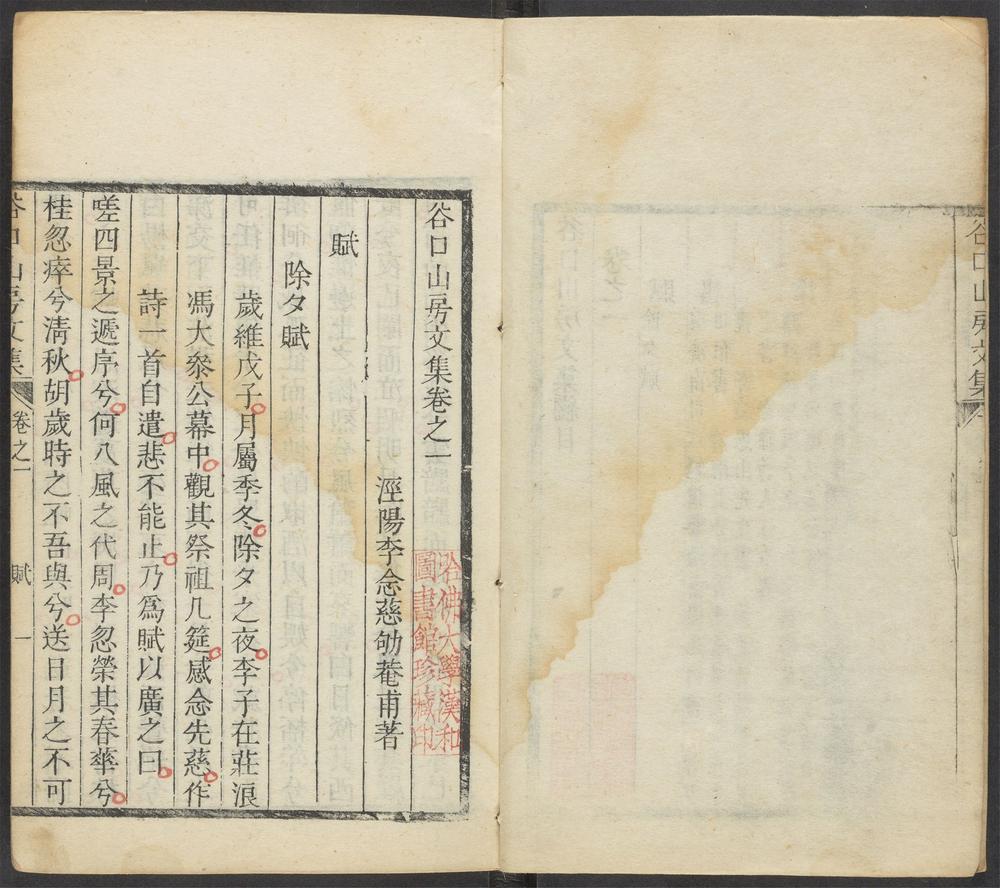 谷口山房文集
谷口山房文集卷之一
涇陽李念慈劬菴甫著
哈佛大學漢和
圖書館珍藏印
賦
除夕賦
歲維戊子月屬季冬除夕之夜李子在莊浪
馮大叅公幕中觀其祭祖几筵感念先慈作
詩一首自遣悲不能止乃爲賦以廣之曰
嗟四景之遞序兮何八風之代周李忽榮其春華兮
桂忽瘁兮淸秋胡歲時之不吾與兮送日月之不可
谷口山房文集
卷之一
賦
一